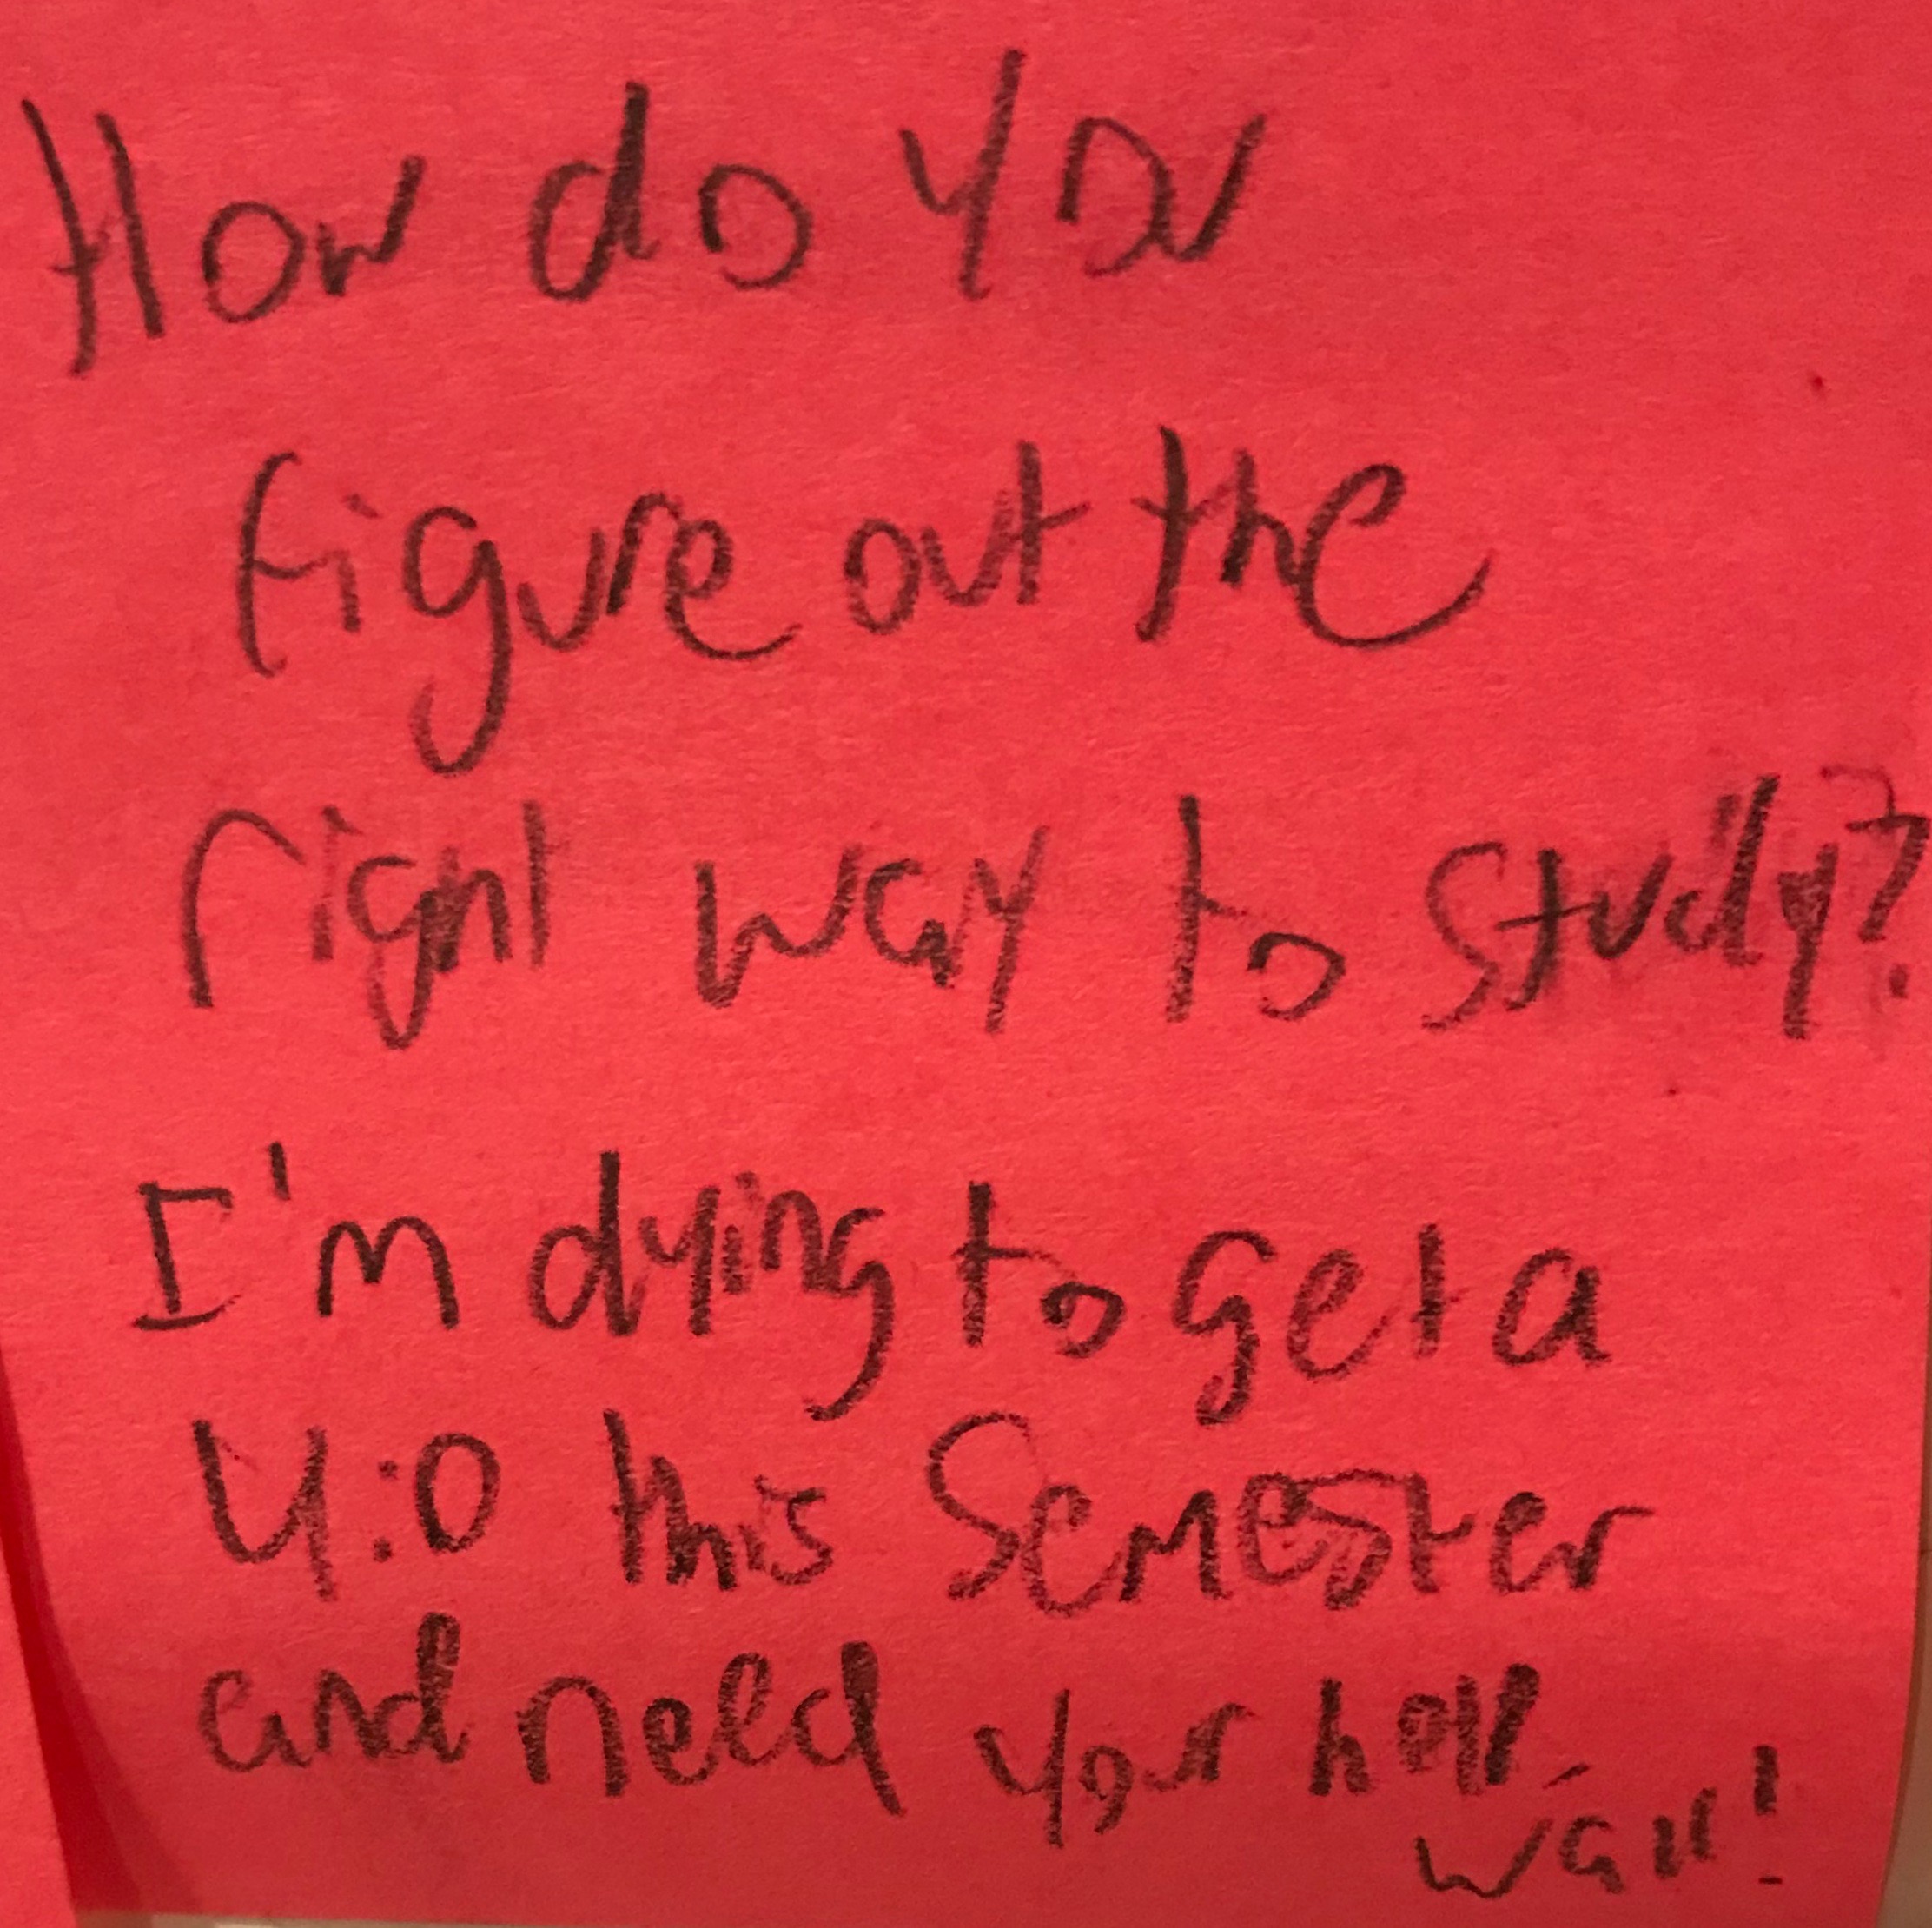 How do you
figure out the
right way to study?
I'm dying to get a
4.0 this Semester
and need your help,
wall!